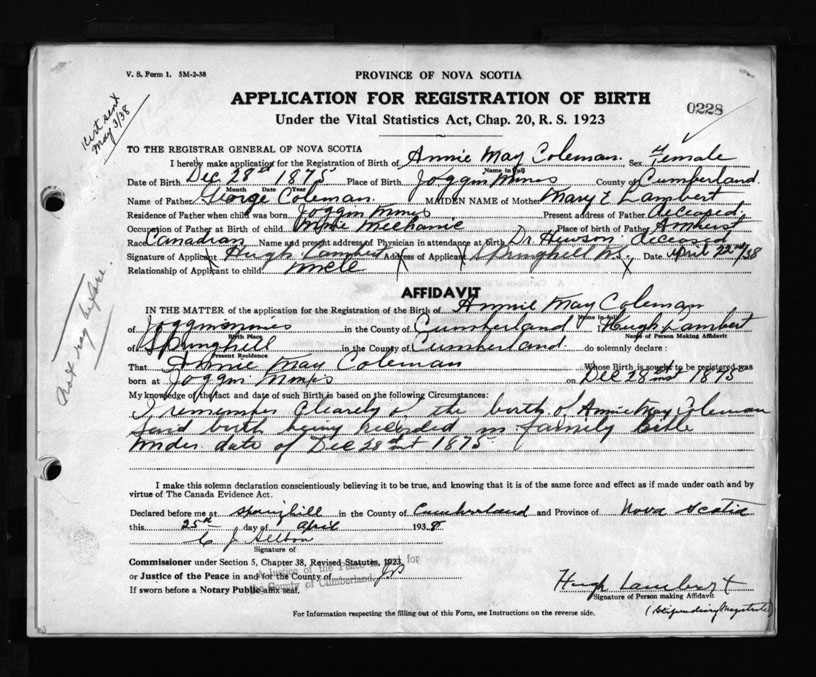 V. S. Form 1. 5M-2-38
PROVINCE OF NOVA SCOTIA
APPLICATION FOR REGISTRATION OF BIRTH
0228
Under the Vital Statistics Act, Chap. 20, R. S. 1923
Cert sent
May 3/38
TO THE REGISTRAR GENERAL OF NOVA SCOTIA
I hereby make application for the Registration of Birth of Annie May Coleman. Sex Female
Name in full
Date of Birth Dec 28 1875 Place of Birth Joggin Mines County of Cumberland.
Month Date Year
Name of Father George Coleman. MAIDEN NAME of Mother Mary E Lambert
Residence of Father when child was born Joggin Mines Present address of Father deceased.
Occupation of Father at Birth of child Mine Mechanic Place of birth of Father Amherst
Race Canadian Name and present address of Physician in attendance at birth Dr. Hewson. deceased
Signature of Applicant Hugh Lambert Address of Applicant Springhill Date April 22nd/38
Relationship of Applicant to child. Uncle
Not reg before.
AFFIDAVIT
IN THE MATTER of the application for the Registration of the Birth of Annie May Coleman
Name in full
of Joggin mines in the County of Cumberland I Hugh Lambert
Birth Place
Name of Person Making Affidavit
of Springhill in the County of Cumberland do solemnly declare:
Present Residence
That Annie May Coleman Whose Birth is sought to be registered was
born at Joggin Mines on Dec 28 1875
My knowledge of the fact and date of such Birth is based on the following Circumstances:
I remember Clearely of the birth of Annie May Coleman
Said birth being recorded in family Bible
under date of Dec 28 1875
I make this solemn declaration conscientiously believing it to be true, and knowing that it is of the same force and effect as if made under oath and by
virtue of The Canada Evidence Act.
Declared before me at Springhill in the County of Cumberland and Province of Nova Scotia
this 25th day of April 1938
C J
Signature of
Commissioner under Section 5, Chapter 38, Revised Statutes, 1923
A Justice of the Peace in and for
the County of Cumberland.
or Justice of the Peace in and for the County of
If sworn before a Notary Public affix seal.
Hugh Lambert
Signature of Person making Affidavit
(Stipendiary Magistrate)
For Information respecting the filling out of this Form, see Instructions on the reverse side.